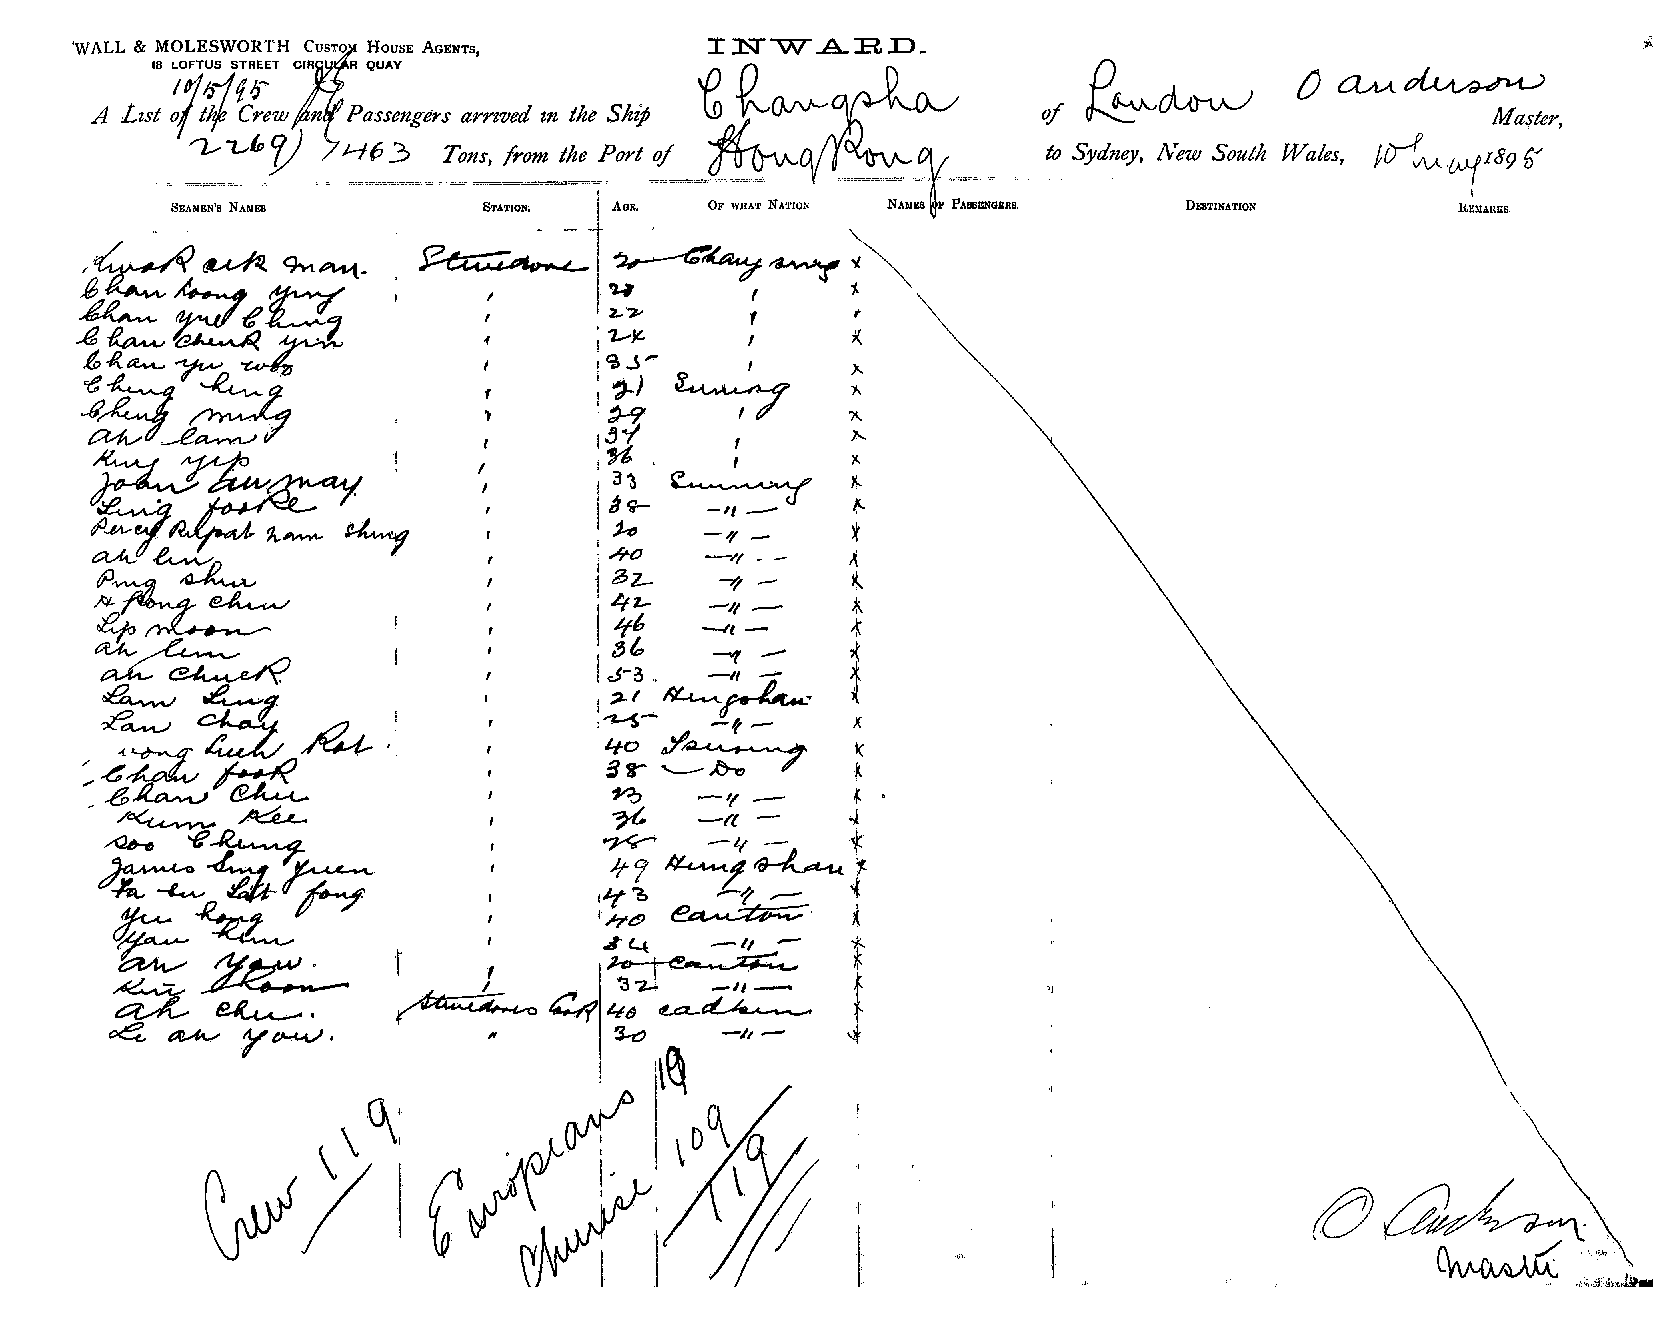 WALL & MOLESWORTH CUSTOM HOUSE AGENTS,
18 LOFTUS STREET CIRCULAR QUAY
INWARD.
10/5/95
A LIST of the Crew and Passengers arrived in the Ship Changsha of London O Anderson Master,
2269/1463 Tons, from the Port of Hong Kong to Sydney, New South Wales, 10th may 1895
SEAMEN'S NAMES STATION. AGE. OF WHAT NATION NAMES OF PASSENGERS. DESTINATION REMARKS
Kwok ack man. Stevedore 20 Chang sning x
Chan koong ying ' 23 ' x
Chan yue Ching ' 22 '
Chan Cheuk yin ' 24 ' x
Chan yu woo ' 35 ' x
Cheng hing ' 21 Sunning x
Cheng ming ' 29 ' x
ah lam ' 34 ' x
King yip ' 36 ' x
Sunning x
Ling fooke ' 38 -"- x
nam shing ' 20 -"- x
ah lin ' 40 -"- x
Ping shu ' 32 -"- x
chiu ' 42 -"- x
Lip moon ' 46 -"- x
ah lim ' 36 -"- x
ah Chuck ' 53 -"- x
Lam Ling ' 21 Hingshan x
Lan Chay ' 25 -"- x
Kat ' 40 x
Chan fook ' 38 - Do x
Chan Chu ' 23 -"- x
Kum Kee ' 36 -"- x
Soo Chung ' 25 -"- x
James Sing Yuen ' 49 Hungshan x
Lat fong ' 43 -"- x
Yee hong ' 40 Canton x
Yau him ' 34 -"- x
ah you. ' 20 Canton x
' 32 -"- x
ah chu. Stevedores Cook 40 x
Le ah you. " 30 -"- x
Crew 119
Europeans 10
Chinese 109
119
O Anderson
Master